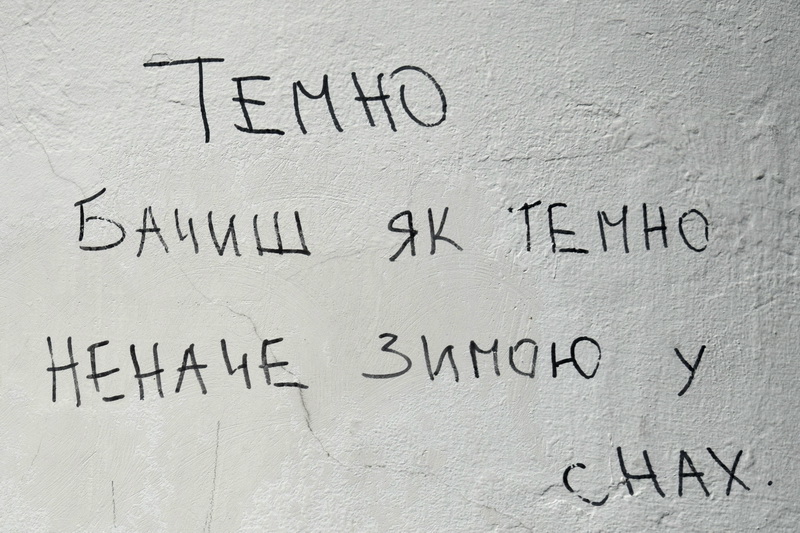 ТЕМНО
БАЧИШ ЯК ТЕМНО
НЕНАЧЕ ЗИМОЮ У
СНАХ.